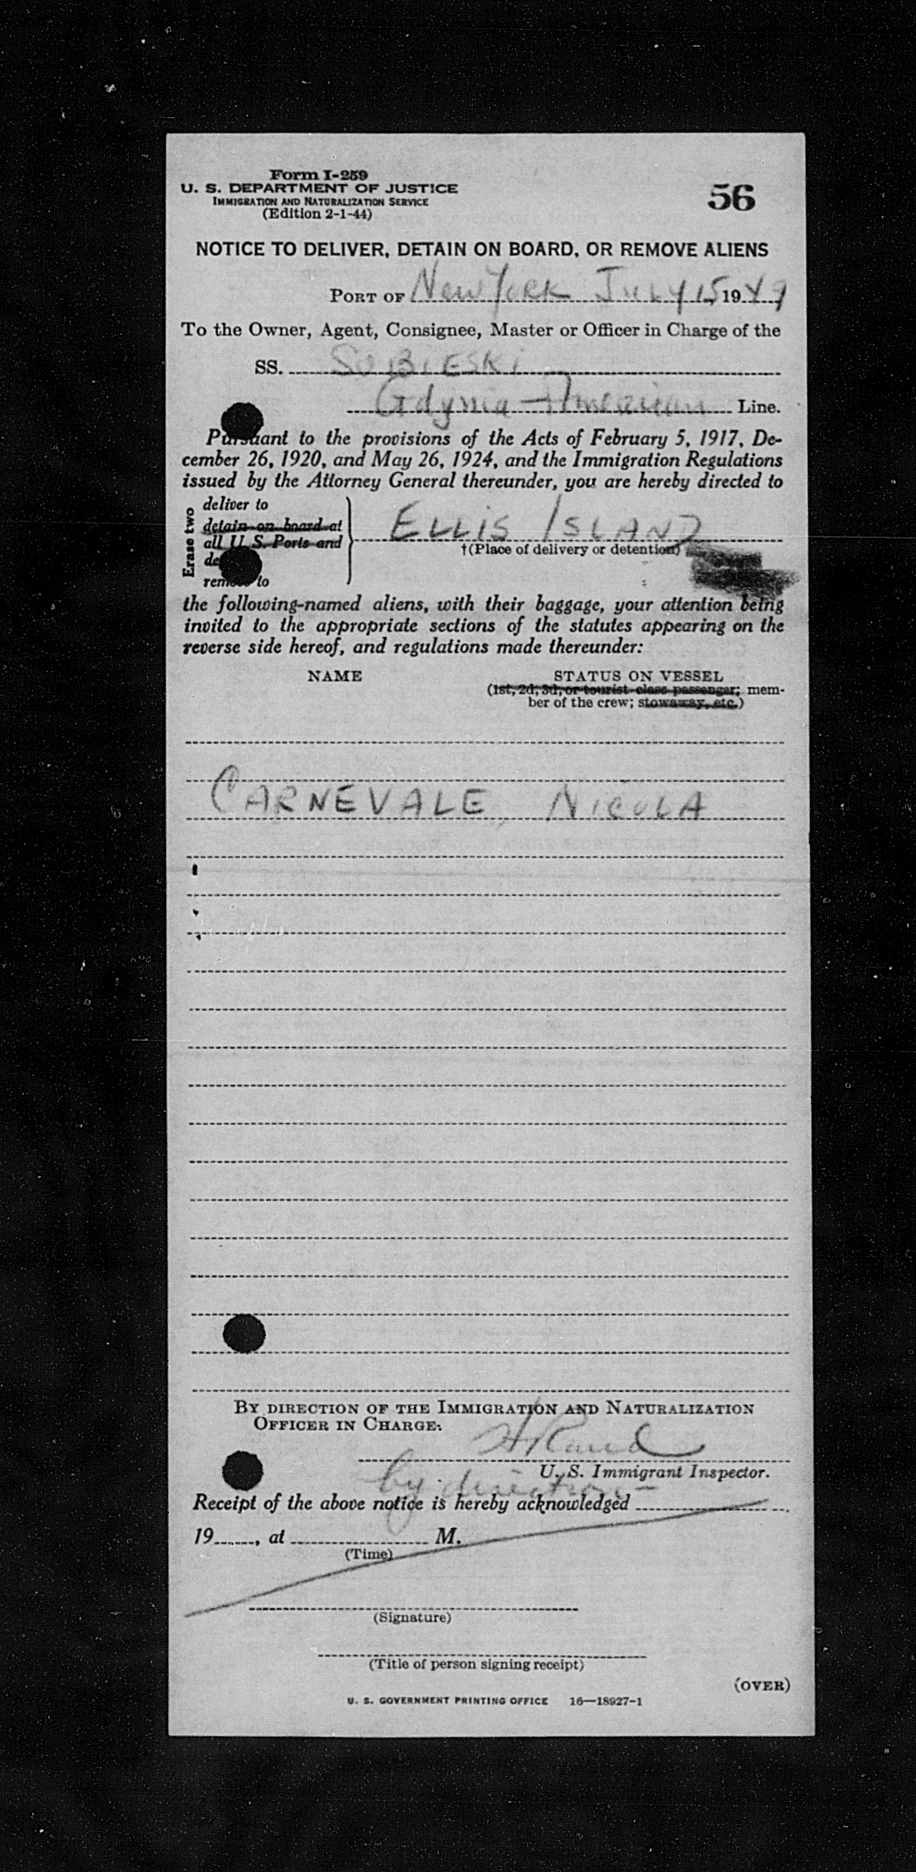 Form I-259
U. S. DEPARTMENT OF JUSTICE
IMMIGRATION AND NATURALIZATION SERVICE
(Edition 2-1-44)
56
NOTICE TO DELIVER, DETAIN ON BOARD, OR REMOVE ALIENS
PORT OF New York July 15, 1949
To the Owner, Agent, Consignee, Master or Officer in Charge of the
SS. SOBIESKI
Gdynia-American Line.
Pursuant to the provisions of the Acts of February 5, 1917, De-
cember 26, 1920, and May 26, 1924, and the Immigration Regulations
issued by the Attorney General thereunder, you are hereby directed to
Erase two
deliver to
detain on board at
all U. S. Ports and
de
remove to
ELLIS ISLAND
†(Place of delivery or detention)
the following-named aliens, with their baggage, your attention being
invited to the appropriate sections of the statutes appearing on the
reverse side hereof, and regulations made thereunder:
NAME STATUS ON VESSEL
(1st, 2d, 3d, or tourist class passenger; mem-
ber of the crew; stowaway, etc.)
CARNEVALE, NICOLA
BY DIRECTION OF THE IMMIGRATION AND NATURALIZATION
OFFICER IN CHARGE:
U. S. Immigrant Inspector.
by direction-
Receipt of the above notice is hereby acknowledged
19, at M.
(Time)
(Signature)
(Title of person signing receipt)
(OVER)
U. S. GOVERNMENT PRINTING OFFICE 16—18927-1